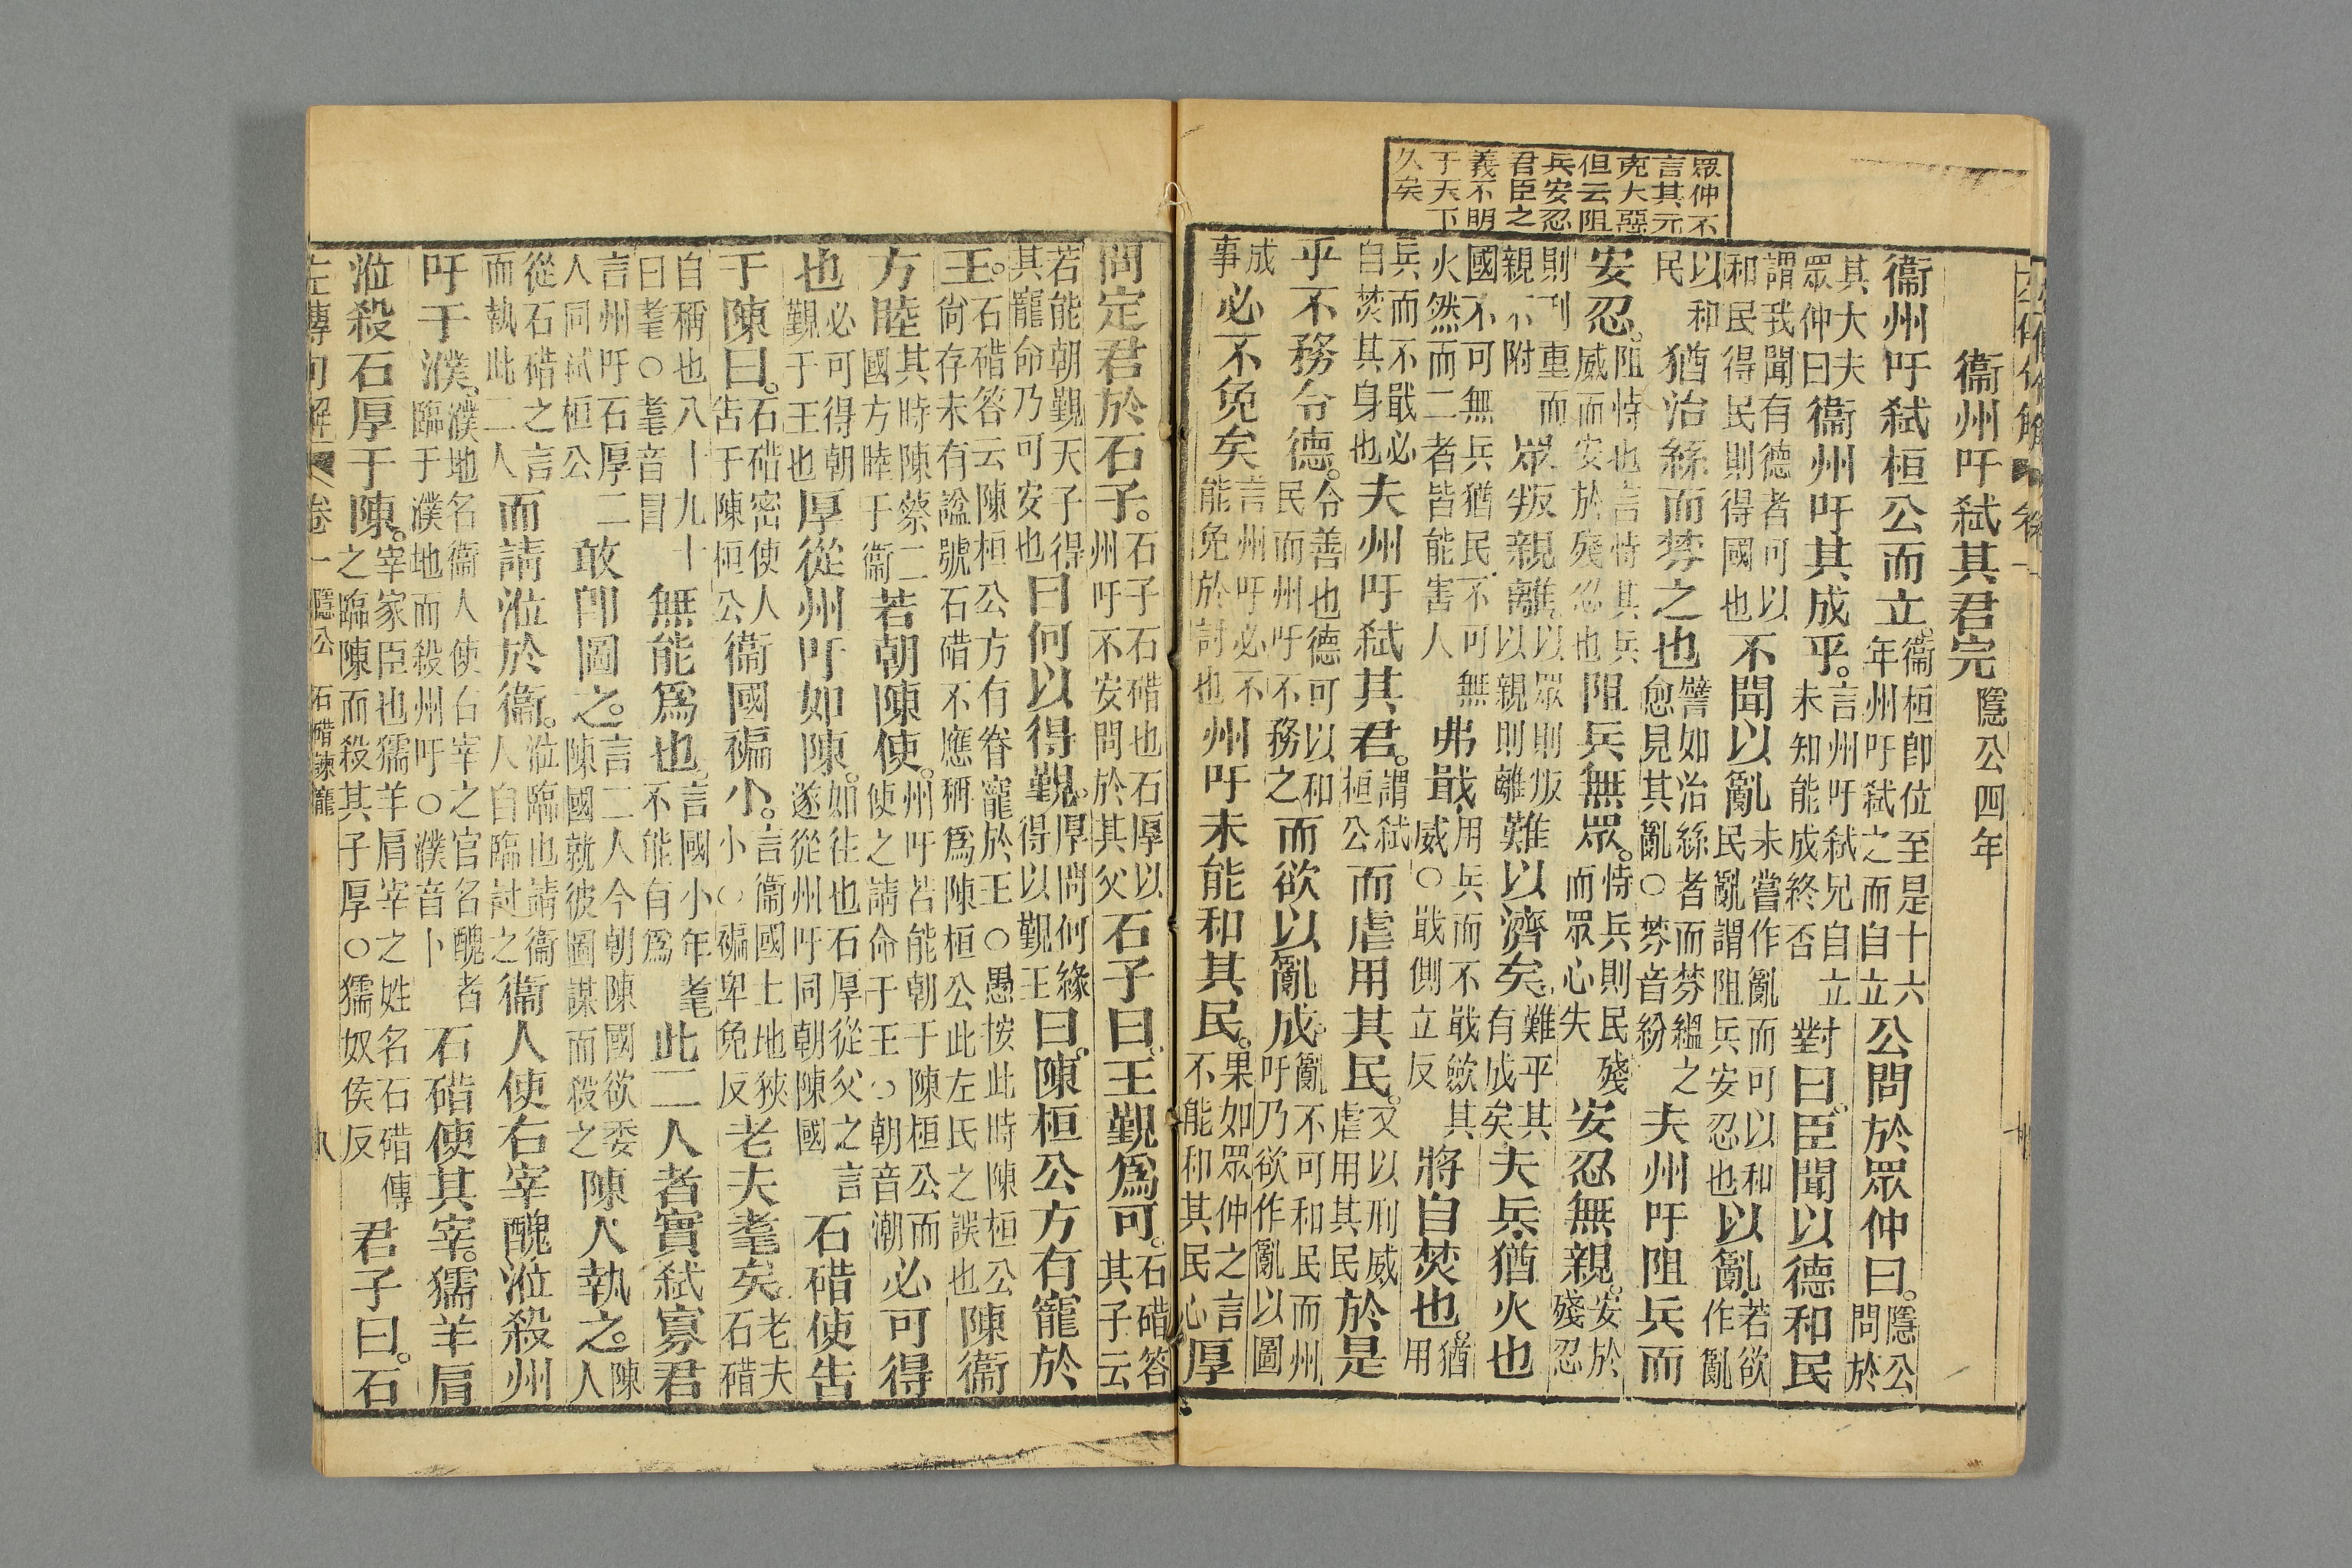 眾仲不
言其元
克大惡
但云阻
兵安忍
君臣之
義不明
于天下
久矣
衞州吁弑其君完隱公四年
衞州吁弑桓公而立。衞桓卽位至是十六年州吁弑之而自立公問於眾仲曰。隱公問於
其大夫眾仲曰衞州吁其成乎。言州吁弑兄自立未知能成終否對曰。臣聞以德和民
謂我聞有德者可以和民得民則得國也不聞以亂未嘗作亂而可以和民亂謂阻兵安忍也以亂若欲作亂
以和民猶治絲而棼之也譬如治絲者而棼縕之愈見其亂○棼音紛夫州吁阻兵而
安忍。阻恃也言恃其兵威而安於殘忍也阻兵無眾。恃兵則民殘而眾心失安忍無親。安於殘忍
則刑重而親不附眾叛親離。以眾則叛以親則離難以濟矣。難平其有成矣夫兵猶火也
國不可無兵猶民不可無火然而二者皆能害人弗戢。用兵而不戢歛其威○戢側立反將自焚也。猶用
兵而不戢必自焚其身也夫州吁弑其君。謂弑桓公而虐用其民。又以刑威虐用其民於是
乎不務令德。令善也德可以和民而州吁不務之而欲以亂成。亂不可和民而州吁乃欲作亂以圖
成事必不免矣言州吁必不能免於討也州吁未能和其民。果如眾仲之言不能和其民心厚
問定君於石子。石子石碏也石厚以州吁不安問於其父石子曰。王覲爲可。石碏答其子云
若能朝覲天子得其寵命乃可安也曰何以得覲。厚問何緣得以覲王曰。陳桓公方有寵於
王。石碏答云陳桓公方有眷寵於王○愚按此時陳桓公尙存未有諡號石碏不應稱爲陳桓公此左氏之誤也陳衞
方睦其時陳蔡二國方睦于衞若朝陳使。州吁若能朝于陳桓公而使之請命于王○朝音潮必可得
也必可得朝覲于王也厚從州吁如陳。如往也石厚從父之言遂從州吁同朝陳國石碏使告
于陳曰。石碏密使人告于陳桓公衞國褊小。言衞國土地狹小○褊卑免反老夫耄矣老夫石碏
自稱也八十九十曰耄○耄音冒無能爲也。言國小年耄不能自爲此二人者實弑寡君
言州吁石厚二人同弑桓公敢卽圖之。言二人今朝陳國欲委陳國就彼圖謀而殺之陳人執之。陳人
從石碏之言而執此二人而請涖於衞。涖臨也請衞人自臨討之衞人使右宰醜涖殺州
吁于濮。濮地名衞人使右宰之官名醜者臨于濮地而殺州吁○濮音卜石碏使其宰。獳羊肩
涖殺石厚于陳。宰家臣也獳羊肩宰之姓名石碏傅之臨陳而殺其子厚○獳奴侯反君子曰。石
左傳句解 卷一 隱公 石碏諫寵 八